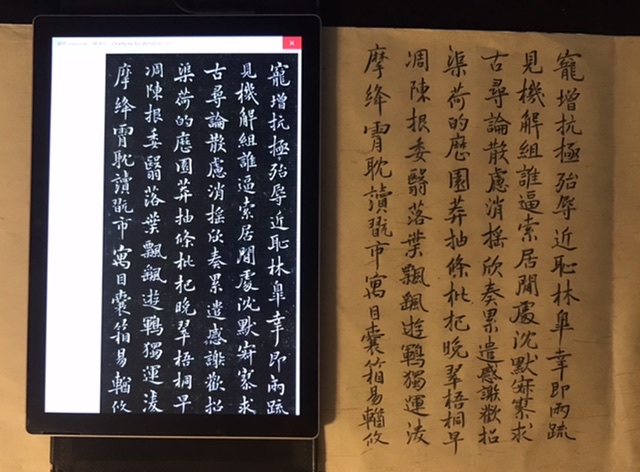 寵增抗極殆辱近恥林皐幸即兩疏
見機解組誰逼索居閒處沈默寂寥求
古尋論散慮消搖欣奏累遣感謝歡招
渠荷的歷園莽抽條枇杷晚翠梧桐早
凋陳根委翳落葉飄飖遊鵾獨運淩
摩絳霄耽讀翫市寓目囊箱易輶攸
寵增抗極殆辱近恥林皐幸即兩疏
見機解組誰逼索居閒處沈默寂寥求
古尋論散慮消搖欣奏累遣感謝歡招
渠荷的歷園莽抽條枇杷晚翠梧桐早
凋陳根委翳落葉飄飖遊鵾獨運淩
摩絳霄耽讀翫市寓目囊箱易輶攸